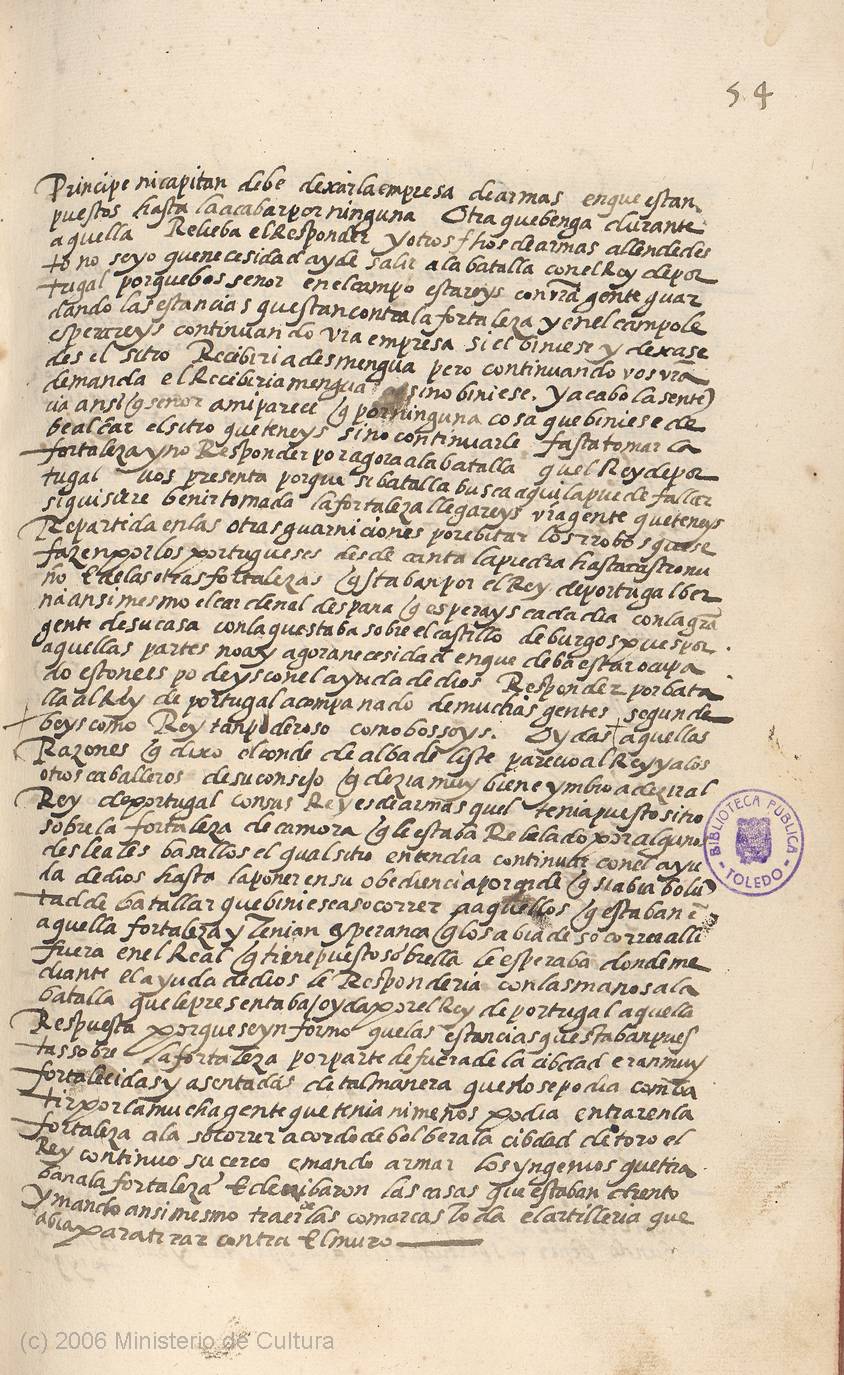 54
Principe ni capitan debe dexar la empresa de armas en que estan
puestos hasta la acabar por ninguna otra que benga durante
aquella Relieba el Responder y otros fhos de armas allende des
to no seyo que necesidad ay de salir a la batalla con el Rey de por
tugal porque bos senor en el campo estareys con vra gente guar
dando las estancias questan contra la fortaleza y en el campo le
esperareys continuando vra empresa si el biniese y dexase
des el sitio Recibiriades mengua pero continuando vos vra
demanda el Recebiria mengua si no biniese. Y acabo la senten
cia ansi q senor a mi parece q por ninguna cosa que biniese de
beal
bar el sitio que teneys sino continuarle fasta tomar la
fortaleza y no Responder por agora a la batalla quel Rey de por
tugal vos presenta porque si batalla busca aqui la puede fallar
si quisiere benir tomada la fortaleza llegareys vra gente que teneys
Repartida en las otras guarniciones por ebitar los rrobos que se
fazen por los portugueses desde canta la piedra hasta castronu
no E de las otras fortalezas q staban por el Rey de portugal ber
na ansi mesmo el cardenal despana q esperays cada dia con la gra
gente de su casa con la questaba sobre el castillo de burgos pues por
aquellas partes no ay agora necesidad en que deba estar ocupa
do estonces podeys con el ayuda de dios Responder por bata
lla al Rey de portugal acompanado de muchas gentes segun de
beys como Rey tan poderoso como bos soys. Oydas aquellas
Razones q dixo el conde de alba de liste parecio al Rey y a los
otros caballeros de su consejo q dezia muy bien e ymbio a dezir al
Rey de portugal con sus Reyes de armas quel tenia puesto sitio
sobre la fortaleza de camora q le estaba Rebelado por alguno
desleales basallos el qual sitio entendia continuar con el ayu
da de dios hasta la poner en su obediencia por ende q si abia bolun
tad de batallar que biniese a socorrer a aquellos q estaban en
aquella fortaleza y tenian esperanca q los abia de socorrer alli
fuera en el Real q tiene puesto sobrella le esperaba donde me
diante el ayuda de dios le Responderia con las manos a la
batalla que le presentaba oyda por el Rey de portugal aquella
Respuesta porque se ynformo que las estancias questaban pues
tas sobre la fortaleza por parte de fuera de la cibdad eran muy
fortalecidas y asentadas de tal manera que no se podia comba
tir por la mucha gente que tenia ni menos podia entrar en la
fortaleza a la socorrer acordo de bolber a la cibdad de toro el
Rey continuo su cerco e mando armar los yngenios que tira
ban a la fortaleza E derribaron las casas que estaban dentro
y mando ansi mesmo traer de las comarcas toda el artilleria que
abia para tirar contra El muro
BIBLIOTECA PUBLICA
TOLEDO
(c) 2006 Ministerio de Cultura